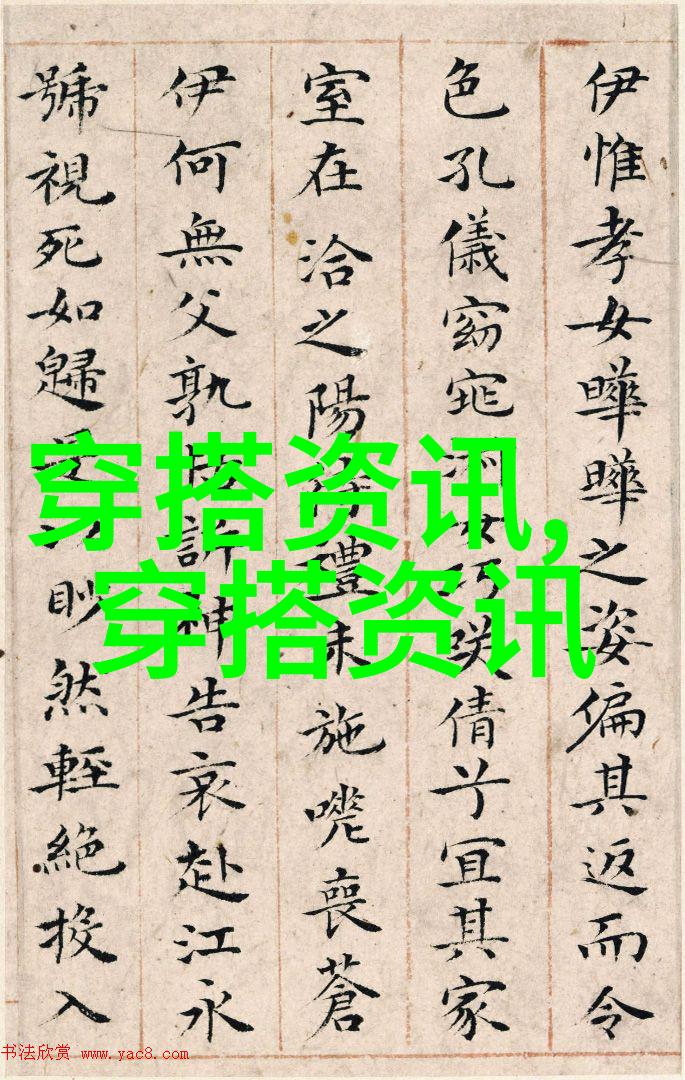 伊惟孝女曄曄之姿偏其返而令
色孔儀窈窕淑女巧咲倩兮宜其家
室在洽之陽待禮未施嗟喪蒼
伊何無父孰怙訴神告哀赴江永
號視死如歸是以眇然輕絕投入
穿搭资讯,
穿搭资讯
书法欣赏 www.yac8.com